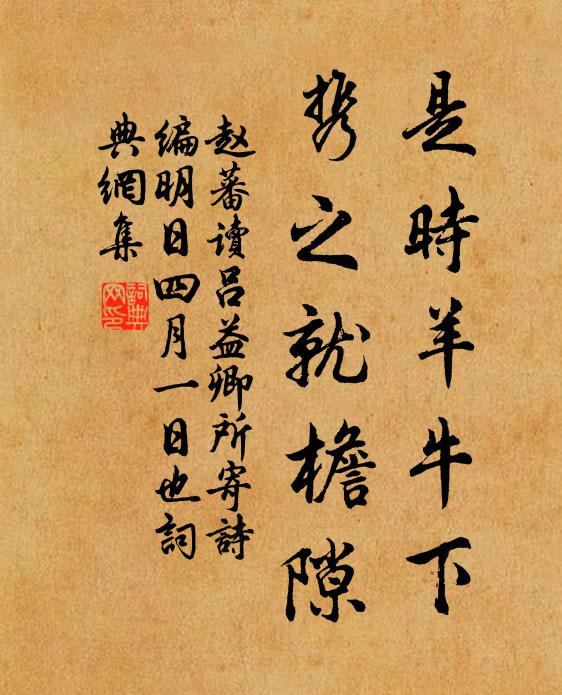 是時羊牛下
携之就檐隙
赵蕃讀吕益卿所寄詩
编明日四月一日也詞
典網集
詞典網印